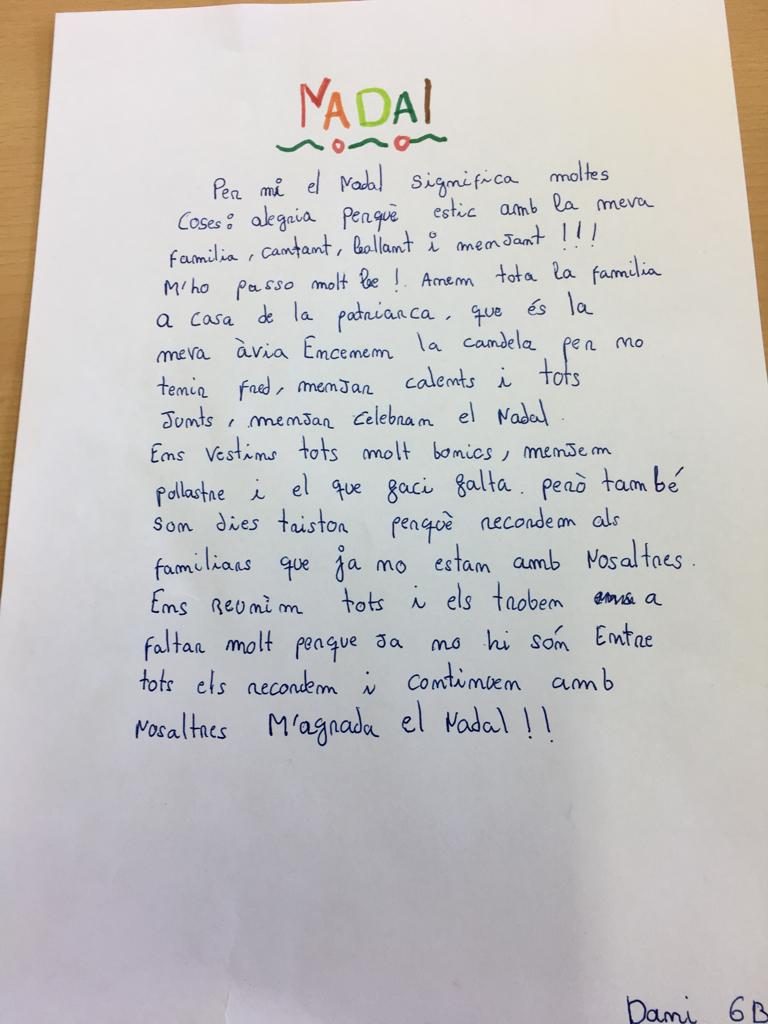 NADAl
Per mi el Nadal significa moltes
Coses: alegria perquè estic amb la meva
familia, cantant, ballant i menjant !!!
M'ho passo molt be! Anem tota la familia
a casa de la patriarca, que és la
meva àvia Encenem la candela per no
tenir fred, menjar calents i tots
Junts, menjar celebram el Nadal.
Ens vestims tots molt bonics, menjem
pollastre i el que faci falta. però també
son dies tristor perquè recordem als
familiars que ja no estam amb Nosaltres.
Ens reunìm tots i els trobem a
faltar molt perque ja no hi són Entre
tots els recordem i continuen amb
Nosaltres M'agrada el Nadal!!
Dani 6B